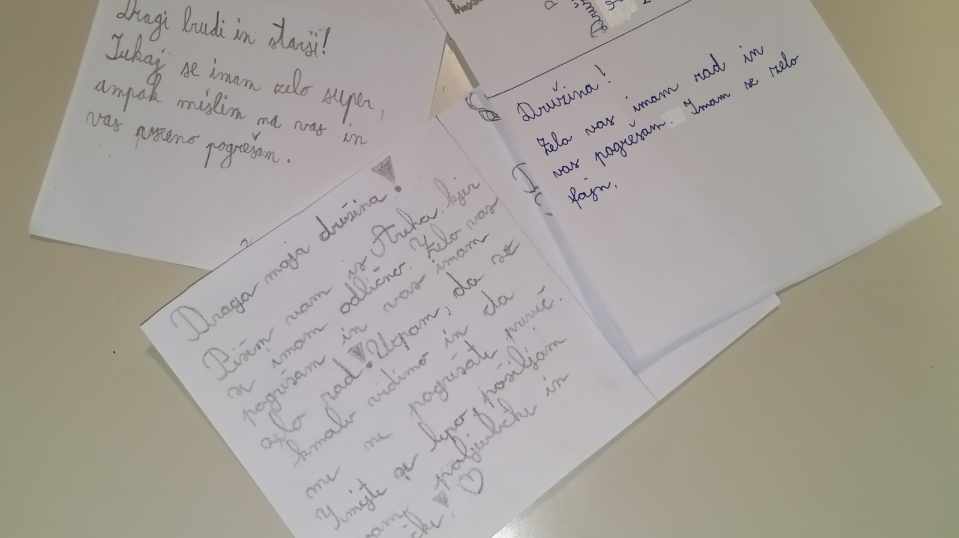 Dragi ljudi in starši!
Tukaj se imam zelo super,
ampak mislim na vas in
vas pogrešam.
Draga moja družina!
Pišem vam iz Struha kjer
se imam odlično. Zelo vas
pogrešam in vas imam
zelo rad! Upam, da se
kmalu vidimo in da
me ne pogrešate preveč.
Imejte se lepo, pošiljam
vam poljubčke in
Družina!
Zelo vas imam rad in
vas pogrešam. Imam se zelo
fajn.